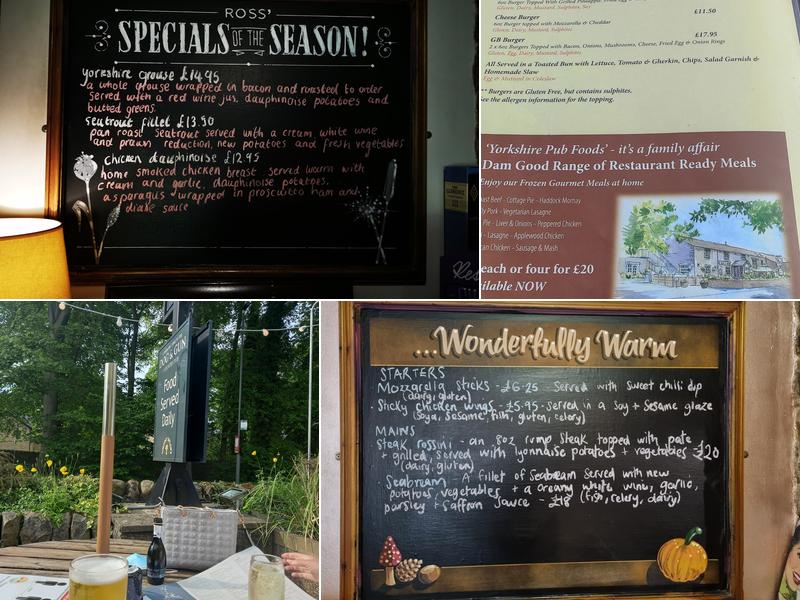 ROSS'
SPECIALS OF THE SEASON!
Yorkshire grouse £14.95
a whole grouse wrapped in bacon and roasted to order
served with a red wine jus, dauphinoise potatoes and
butted greens.
Seatrout fillet £13.50
pan roast seatrout served with a cream white wine
and prawn reduction, new potatoes and fresh vegetables
chicken dauphinoise £12.95
home smoked chicken breast served warm with
cream and garlic dauphinoise potatoes.
asparagus wrapped in prosciutto ham and
diane sauce
Gluten, Dairy, Mustard, Sulphites, Soy
£11.50
Cheese Burger
6oz Burger topped with Mozzarella & Cheddar
Gluten, Dairy, Mustard, Sulphites
£17.95
GB Burger
2 x 6oz Burgers Topped with Bacon, Onions, Mushrooms, Cheese, Fried Egg & Onion Rings
Gluten, Egg, Dairy, Mustard, Sulphites
All Served in a Toasted Bun with Lettuce, Tomato & Gherkin, Chips, Salad Garnish &
Homemade Slaw
Egg & Mustard in Coleslaw
** Burgers are Gluten Free, but contains sulphites.
See the allergen information for the topping.
'Yorkshire Pub Foods' - it's a family affair
Dam Good Range of Restaurant Ready Meals
Enjoy our Frozen Gourmet Meals at home
Beef - Cottage Pie - Haddock Mornay
Pork - Vegetarian Lasagne
Pie - Liver & Onions - Peppered Chicken
- Lasagne - Applewood Chicken
Chicken - Sausage & Mash
each or four for £20
NOW
DOG & GUN
Food
Served
Daily
...Wonderfully Warm
STARTERS
Mozzarella sticks - £6.25 - Served with sweet chilli dip
(dairy, gluten)
Sticky chicken wings - £5.95 - served in a soy + sesame glaze
(Soya, sesame, fish, gluten, celery)
MAINS
Steak rossini - an 8oz rump steak topped with pate
+ grilled, served with lyonnaise potatoes + vegetables £20
(dairy, gluten)
Seabream - A fillet of Seabream served with new
potatoes, vegetables + a creamy white wine, garlic,
parsley + saffron sauce - £18 (fish, celery, dairy)